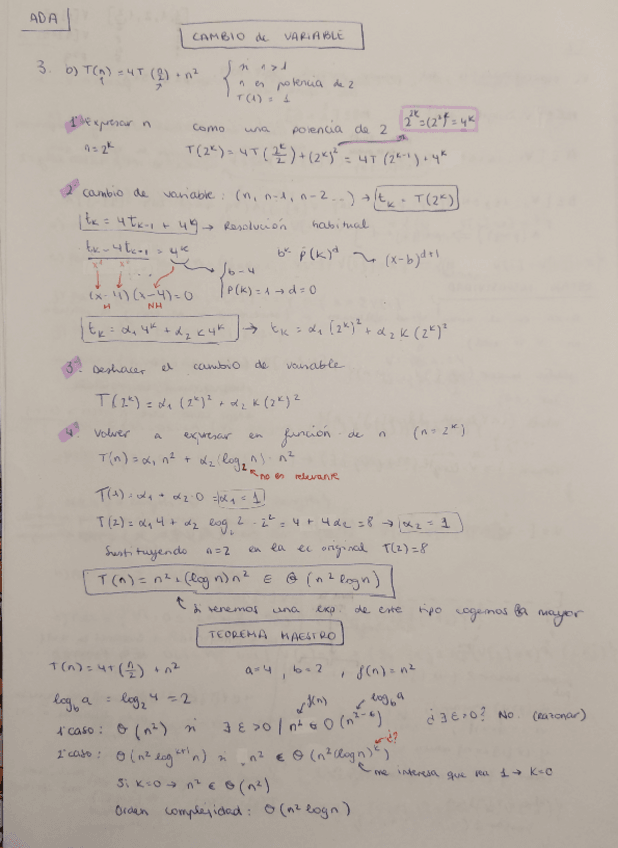 ADA
CAMBIO de VARIABLE
3. b) T(n) = 4T(n/2) + n² { si n>1
n es potencia de 2
T(1) = 1
1º Expresar n como una potencia de 2 2²ᵏ=(2²)ᵏ=4ᵏ
n=2ᵏ T(2ᵏ) = 4T(2ᵏ/2) + (2ᵏ)² = 4T(2ᵏ⁻¹) + 4ᵏ
2º cambio de variable: (n, n-1, n-2 ...) → tₖ = T(2ᵏ)
tₖ = 4tₖ₋₁ + 4ᵏ → Resolución habitual
tₖ - 4tₖ₋₁ = 4ᵏ bᵏ P(k)ᵈ → (x-b)ᵈ⁺¹
{ b=4
(x-4)(x-4)=0 P(k)=1 → d=0
H NH
tₖ = α₁4ᵏ + α₂k4ᵏ → tₖ = α₁(2ᵏ)² + α₂k(2ᵏ)²
3º. Deshacer el cambio de variable
T(2ᵏ) = α₁(2ᵏ)² + α₂k(2ᵏ)²
4º. Volver a expresar en función de n (n=2ᵏ)
T(n) = α₁n² + α₂(log₂n)·n²
no es relevante
T(1) = α₁ + α₂·0 = α₁ = 1
T(2) = α₁4 + α₂ log₂2·2² = 4 + 4α₂ = 8 → α₂ = 1
Sustituyendo n=2 en la ec original T(2)=8
T(n) = n² + (log n)n² ∈ Θ(n² log n)
Si tenemos una exp. de este tipo cogemos la mayor
TEOREMA MAESTRO
T(n) = 4T(n/2) + n² a=4, b=2, f(n)=n²
log_b a = log₂4 = 2
f(n) log_b a
1º caso: Θ(n²) si ∃ε>0 | n² ∈ O(n²⁻ᵋ) ¿∃ε>0? No. (Razonar)
¿?
2º caso: Θ(n² logᵏ⁺¹ n) si n² ∈ Θ(n²(log n)ᵏ)
me interesa que sea 1 → k=0
Si k=0 → n² ∈ Θ(n²)
Orden complejidad: Θ(n² log n)